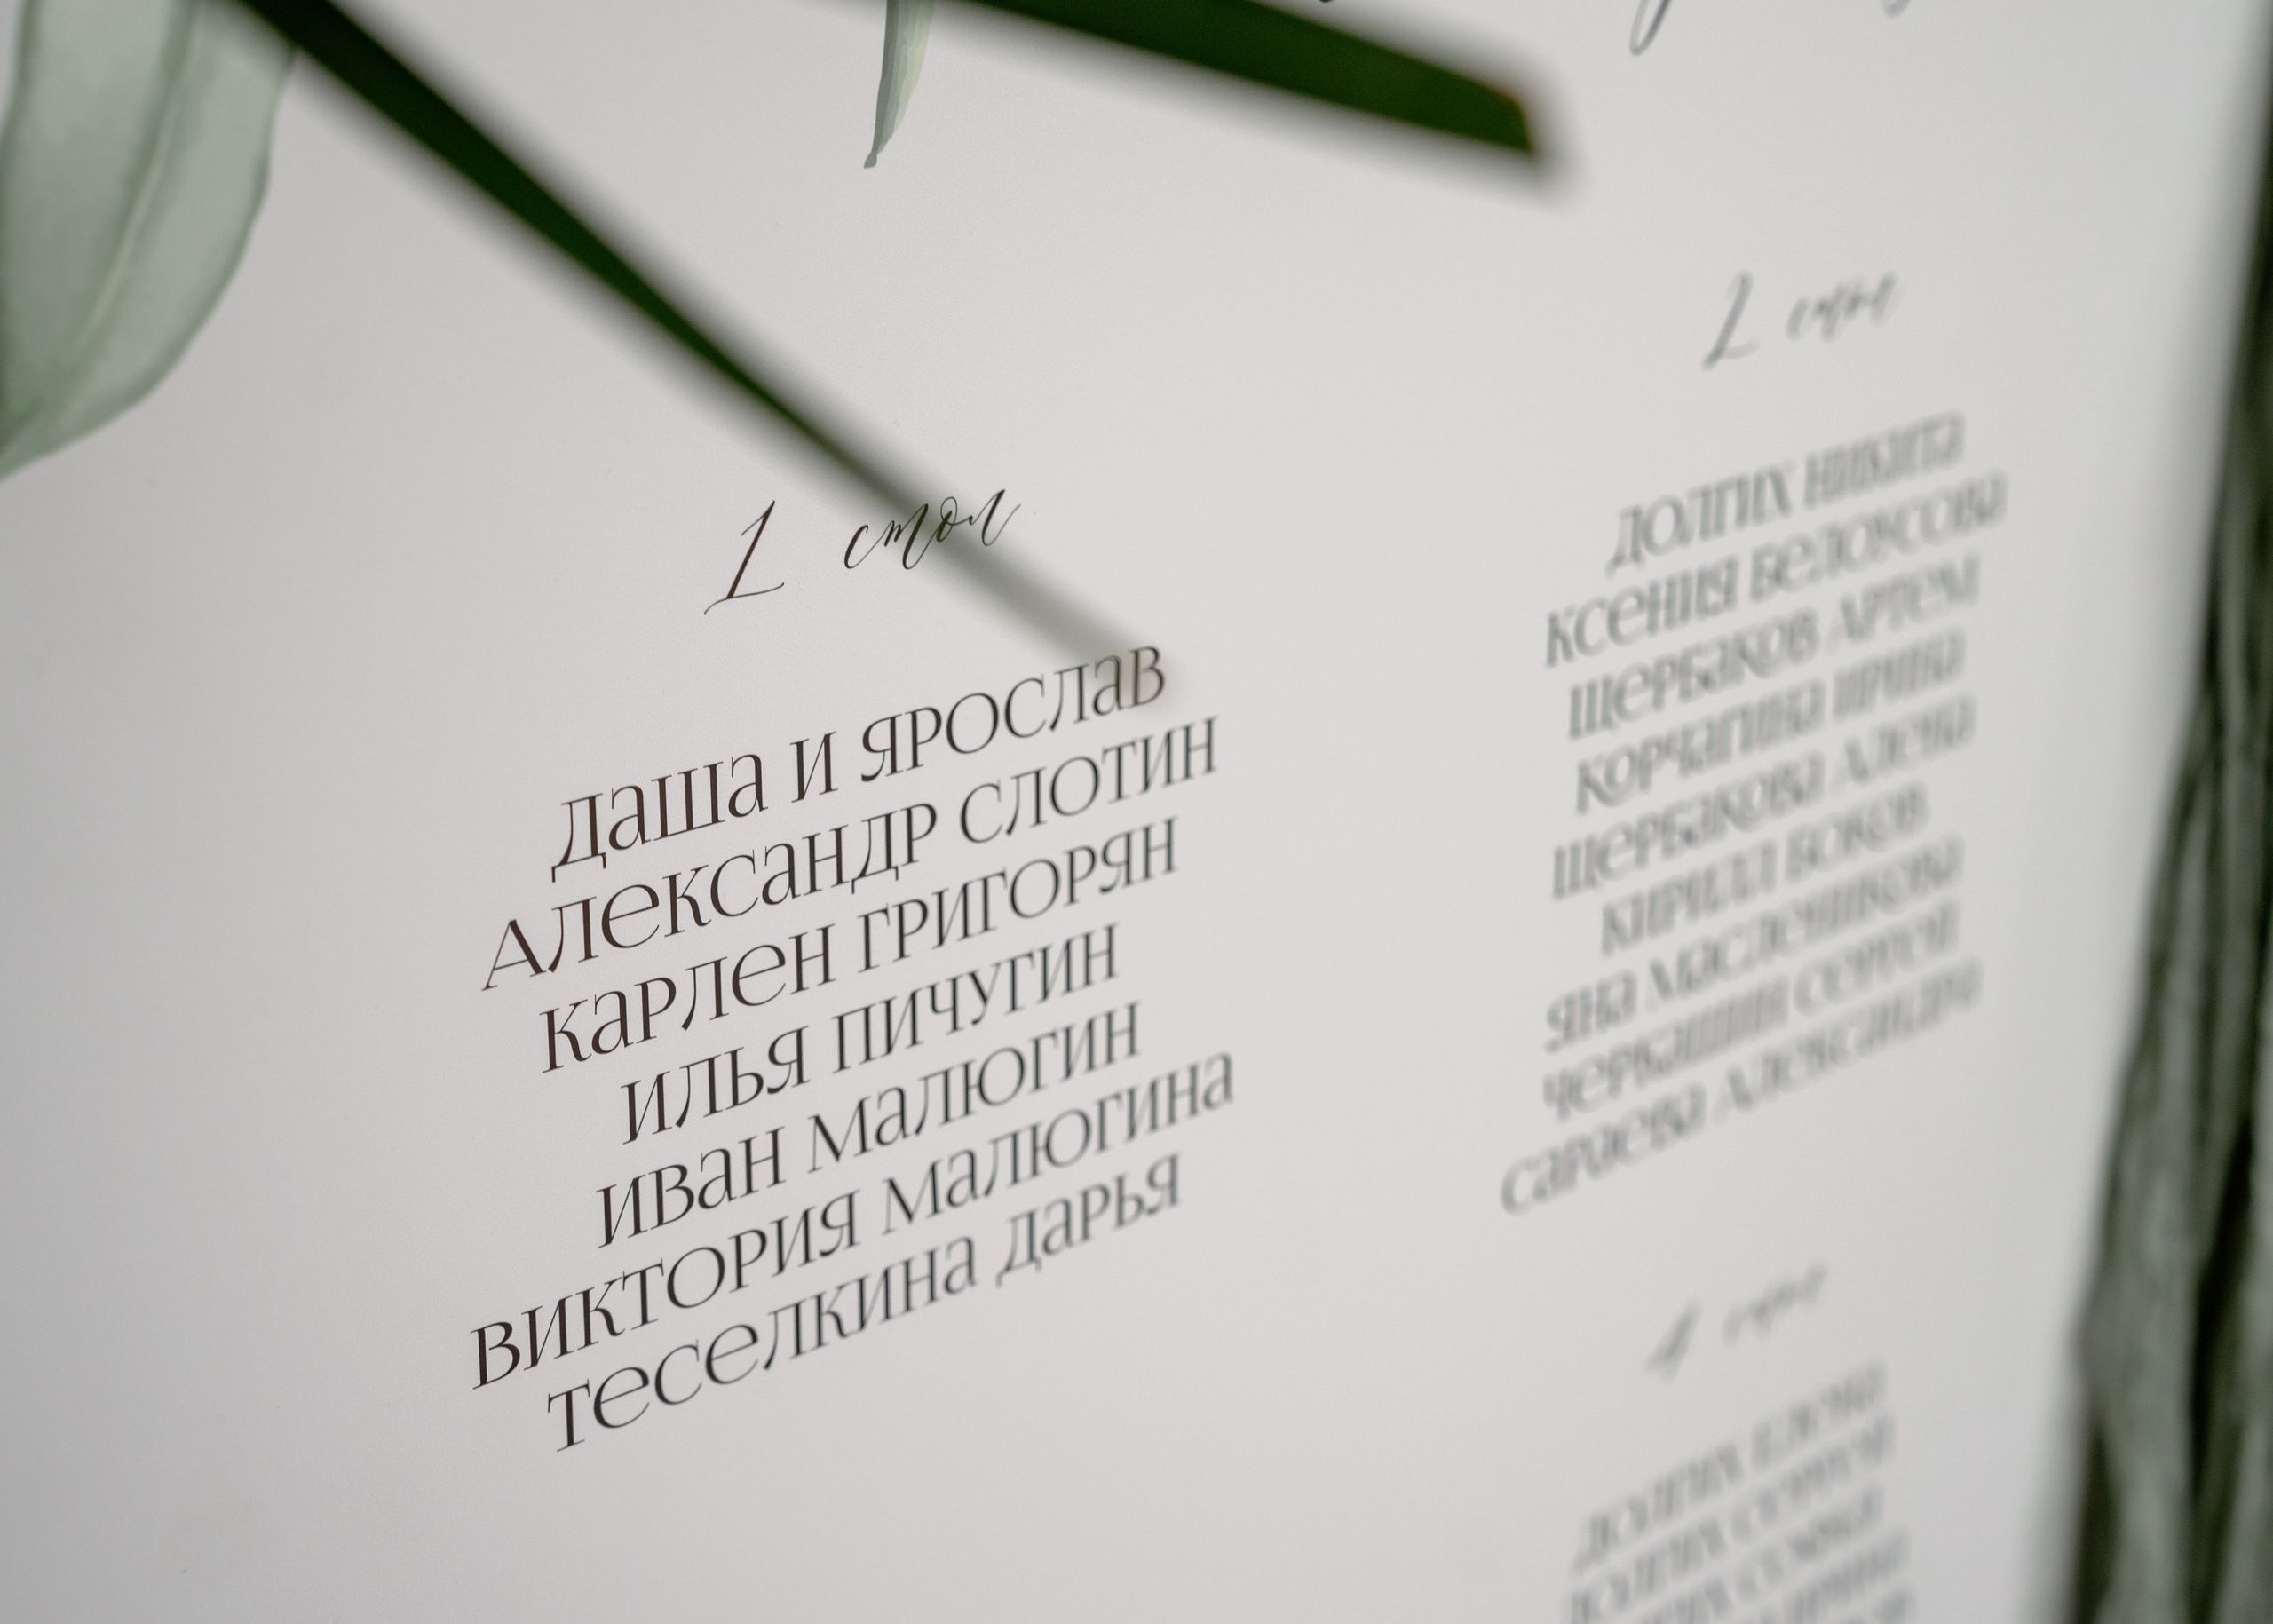 1 стол
Даша и Ярослав
Александр Слотин
Карлен Григорян
Илья Пичугин
Иван Малюгин
Виктория Малюгина
Теселкина Дарья
2 стол
Долгих Никита
Ксения Белоусова
Щербаков Артем
Корчагина Ирина
Щербакова Алена
Кирилл Боков
Яна Масленникова
Сараева Александра
4 стол
Долгих
Долгих Сергей